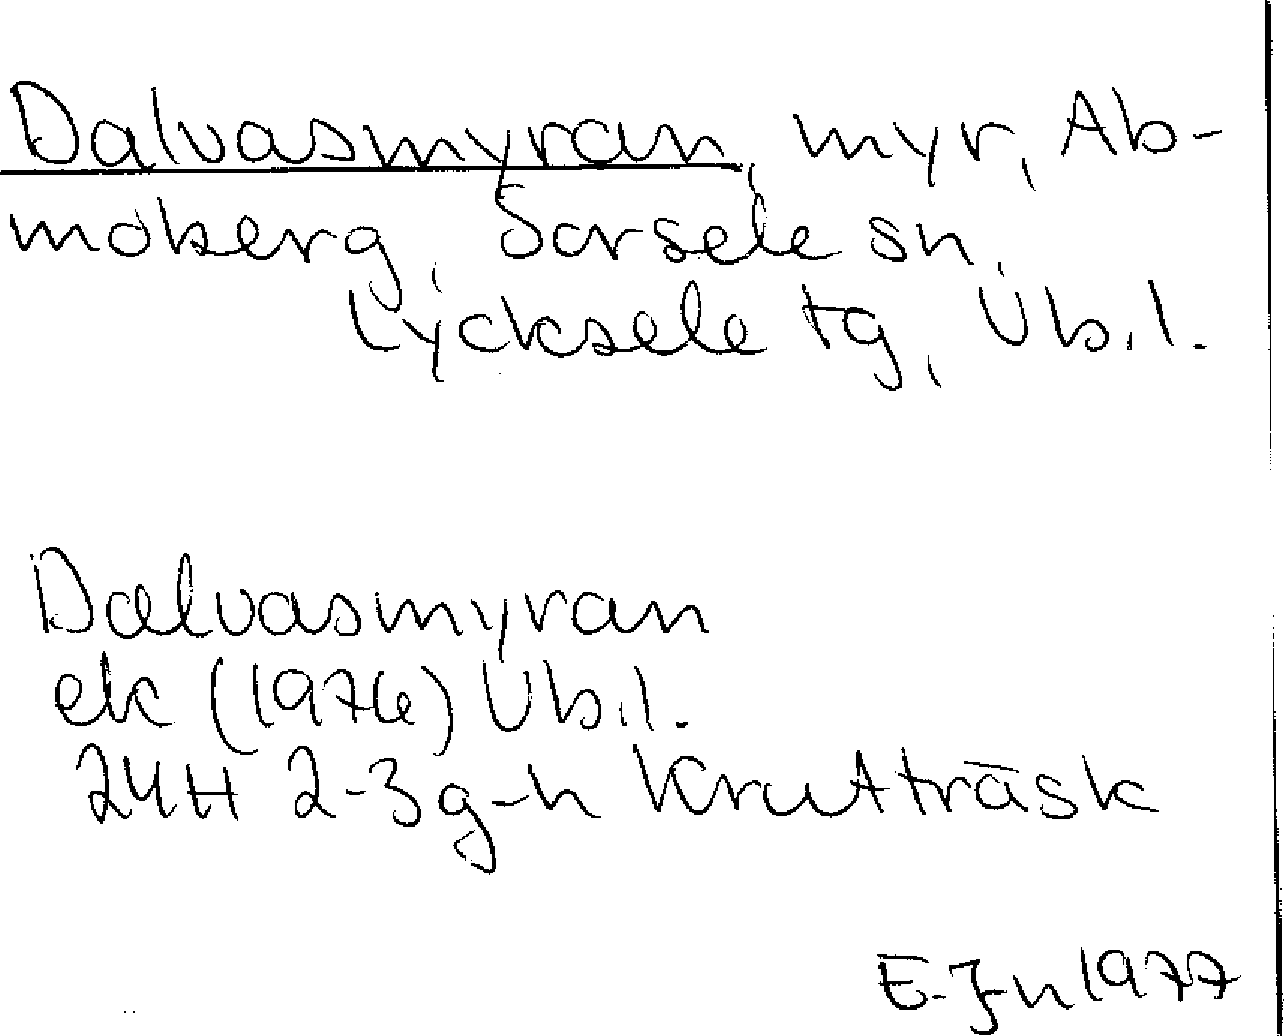 Dalvasmyran, myr, Ab-
moberg, Sorsele sn,
Lycksele tg, Vb.l.
Dalvasmyran
ek (1976) Vb.l.
24H 2-3g-h Krutträsk
E. Jn 1977